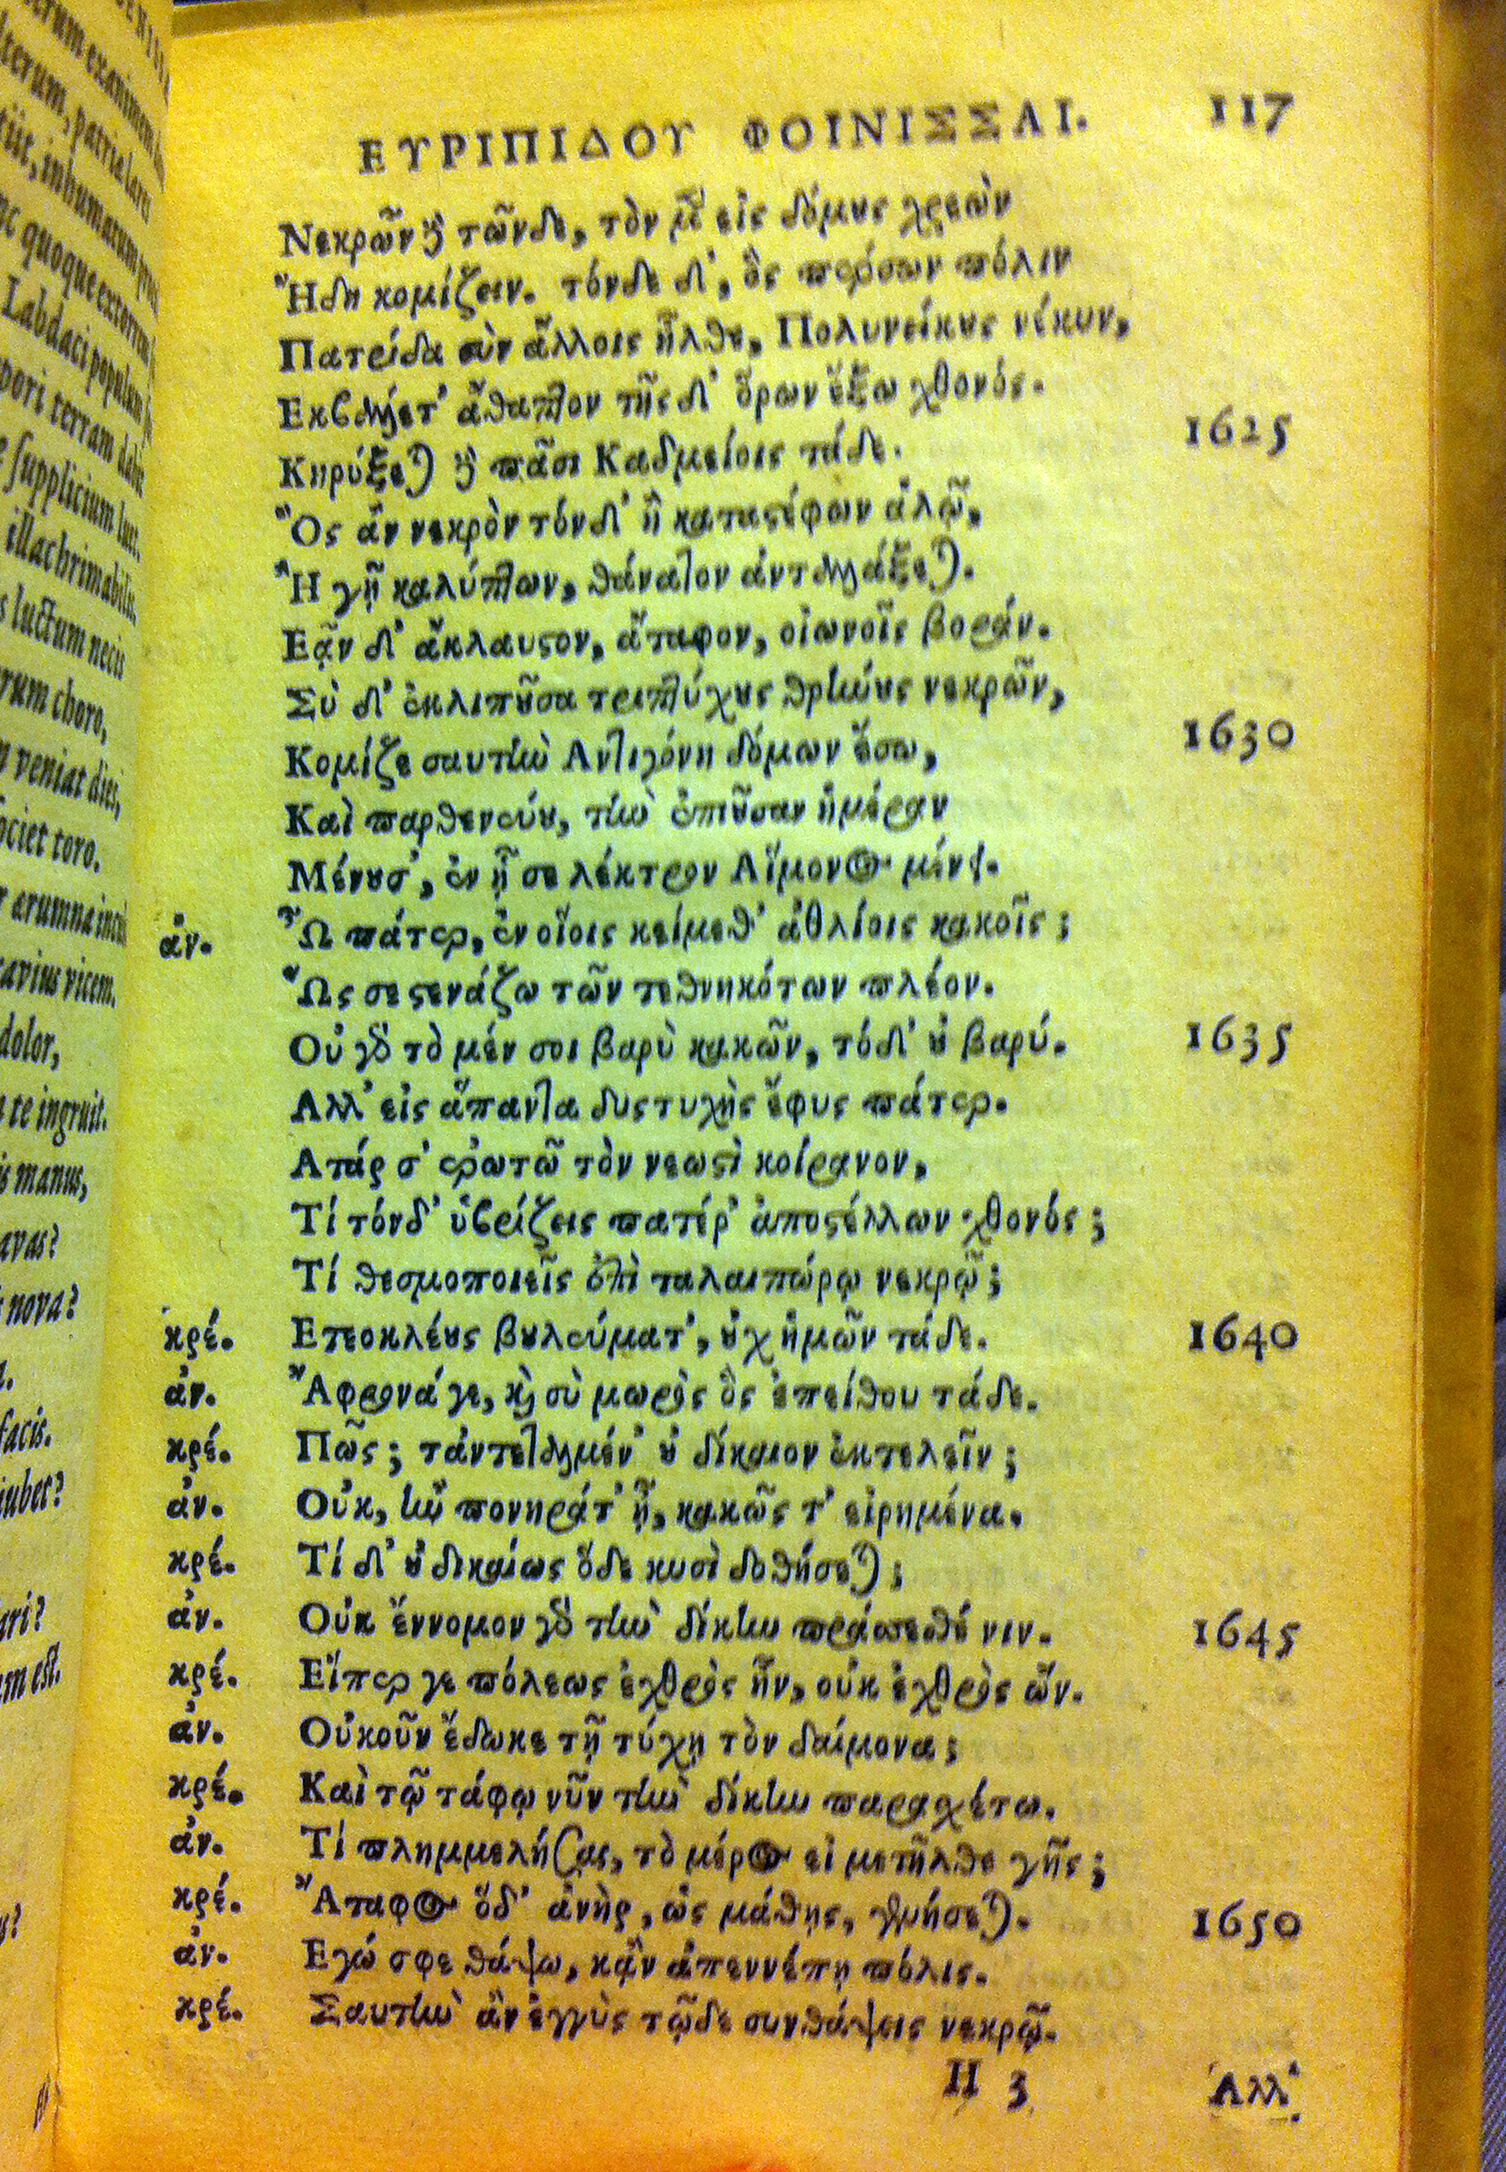 ΕΥΡΙΠΙΔΟΥ ΦΟΙΝΙΣΣΑΙ. 117
Νεκρῶν δὲ τῶνδε, τὸν μὲν εἰς δόμους χρεὼν
Ἤδη κομίζειν. τόνδε δ', ὃς πέρσων πόλιν
Πατρίδα σὺν ἄλλοις ἦλθε, Πολυνείκους νέκυν,
Εκβάλετ' ἄθαπτον τῆςδ' ὅρων ἔξω χθονός.
Κηρύξεται δὲ πᾶσι Καδμείοις τάδε. 1625
Ὃς ἂν νεκρὸν τόνδ' ἢ καταστέφων ἁλῷ,
Ἢ γῇ καλύπτων, θάνατον ἀνταλλάξεται.
Εᾷν δ' ἄκλαυστον, ἄταφον, οἰωνοῖς βοράν.
Σὺ δ' ἐκλιποῦσα τριπτύχους θρήνους νεκρῶν,
Κόμιζε σαυτὴν Αντιγόνη δόμων ἔσω, 1630
Καὶ παρθενεύου, τὴν ἐπιοῦσαν ἡμέραν
Μένουσ', ἐν ᾗ σε λέκτρον Αἵμονος μένει.
ἀν. Ὦ πάτερ, ἐν οἵοις κείμεθ' ἀθλίοις κακοῖς;
Ὥς σε στενάζω τῶν τεθνηκότων πλέον.
Οὐ γὰρ τὸ μέν σοι βαρὺ κακῶν, τόδ' οὐ βαρύ. 1635
Αλλ' εἰς ἅπαντα δυστυχὴς ἔφυς πάτερ.
Ατάρ σ' ἐρωτῶ τὸν νεωστὶ κοίρανον,
Τί τόνδ' ὑβρίζεις πατέρ' ἀποστέλλων χθονός;
Τί θεσμοποιεῖς ἐπὶ ταλαιπώρῳ νεκρῷ;
κρέ. Ετεοκλέους βουλεύματ', οὐχ ἡμῶν τάδε. 1640
ἀν. Ἄφρονά γε, καὶ σὺ μωρὸς ὃς ἐπείθου τάδε.
κρέ. Πῶς; τἀντεταλμέν' οὐ δίκαιον ἐκτελεῖν;
ἀν. Οὐκ, ἢν πονηράτ' ᾖ, κακῶς τ' εἰρημένα.
κρέ. Τί δ' οὐ δικαίως ὅδε κυσὶ δοθήσεται;
ἀν. Οὐκ ἔννομον γὰρ τὴν δίκην πράσσεσθέ νιν. 1645
κρέ. Εἴπερ γε πόλεως ἐχθρὸς ἦν, οὐκ ἐχθρὸς ὤν.
ἀν. Οὐκοῦν ἔδωκε τῇ τύχῃ τὸν δαίμονα;
κρέ. Καὶ τῷ τάφῳ νῦν τὴν δίκην παρασχέτω.
ἀν. Τί πλημμελήσας, τὸ μέρος εἰ μετῆλθε γῆς;
κρέ. Ἄταφος ὅδ' ἀνὴρ, ὡς μάθῃς, γενήσεται. 1650
ἀν. Εγώ σφε θάψω, κᾂν ἀπεννέπῃ πόλις.
κρέ. Σαυτὴν ἂν ἐγγὺς τῷδε συνθάψεις νεκρῷ.
H 3 Ἀλλ'